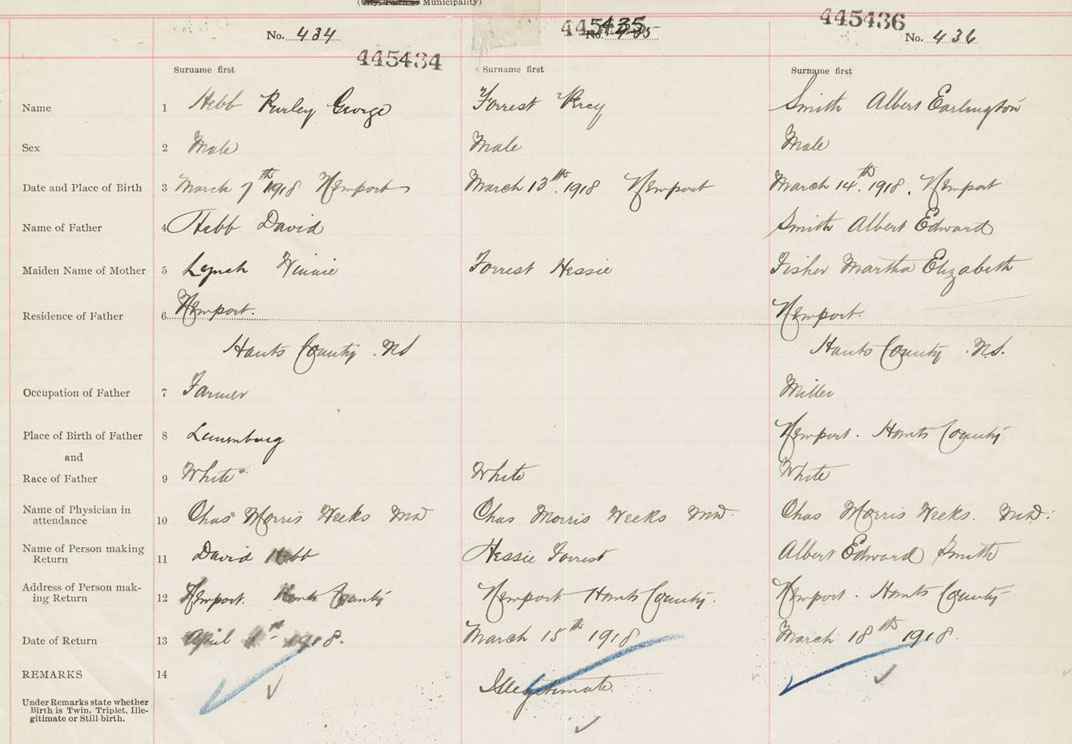 Municipality)
No. 434
445434
445435
No. 435
445436
No. 436
Surname first Surname first Surname first
Name 1 Hebb Purley George Forrest Percy Smith Albert Earlington
Sex 2 Male Male Male
Date and Place of Birth 3 March 7th 1918 Newport March 13th 1918 Newport March 14th 1918. Newport
Name of Father 4 Hebb David Smith Albert Edward
Maiden Name of Mother 5 Lynch Winnie Forrest Hessie Fisher Martha Elizabeth
Residence of Father 6 Newport. Newport.
Hants County NS Hants County N.S.
Occupation of Father 7 Farmer Miller
Place of Birth of Father 8 Lunenburg Newport. Hants County
and
Race of Father 9 White White White
Name of Physician in
attendance 10 Chas Morris Weeks MD Chas Morris Weeks MD. Chas Morris Weeks. MD.
Name of Person making
Return 11 David Hebb Hessie Forrest Albert Edward Smith
Address of Person mak-
ing Return 12 Newport. Hants County Newport Hants County. Newport. Hants County
Date of Return 13 April 1st 1918. March 15th 1918 March 18th 1918.
REMARKS 14 Illegitimate
Under Remarks state whether
Birth is Twin, Triplet, Ille-
gitimate or Still birth.